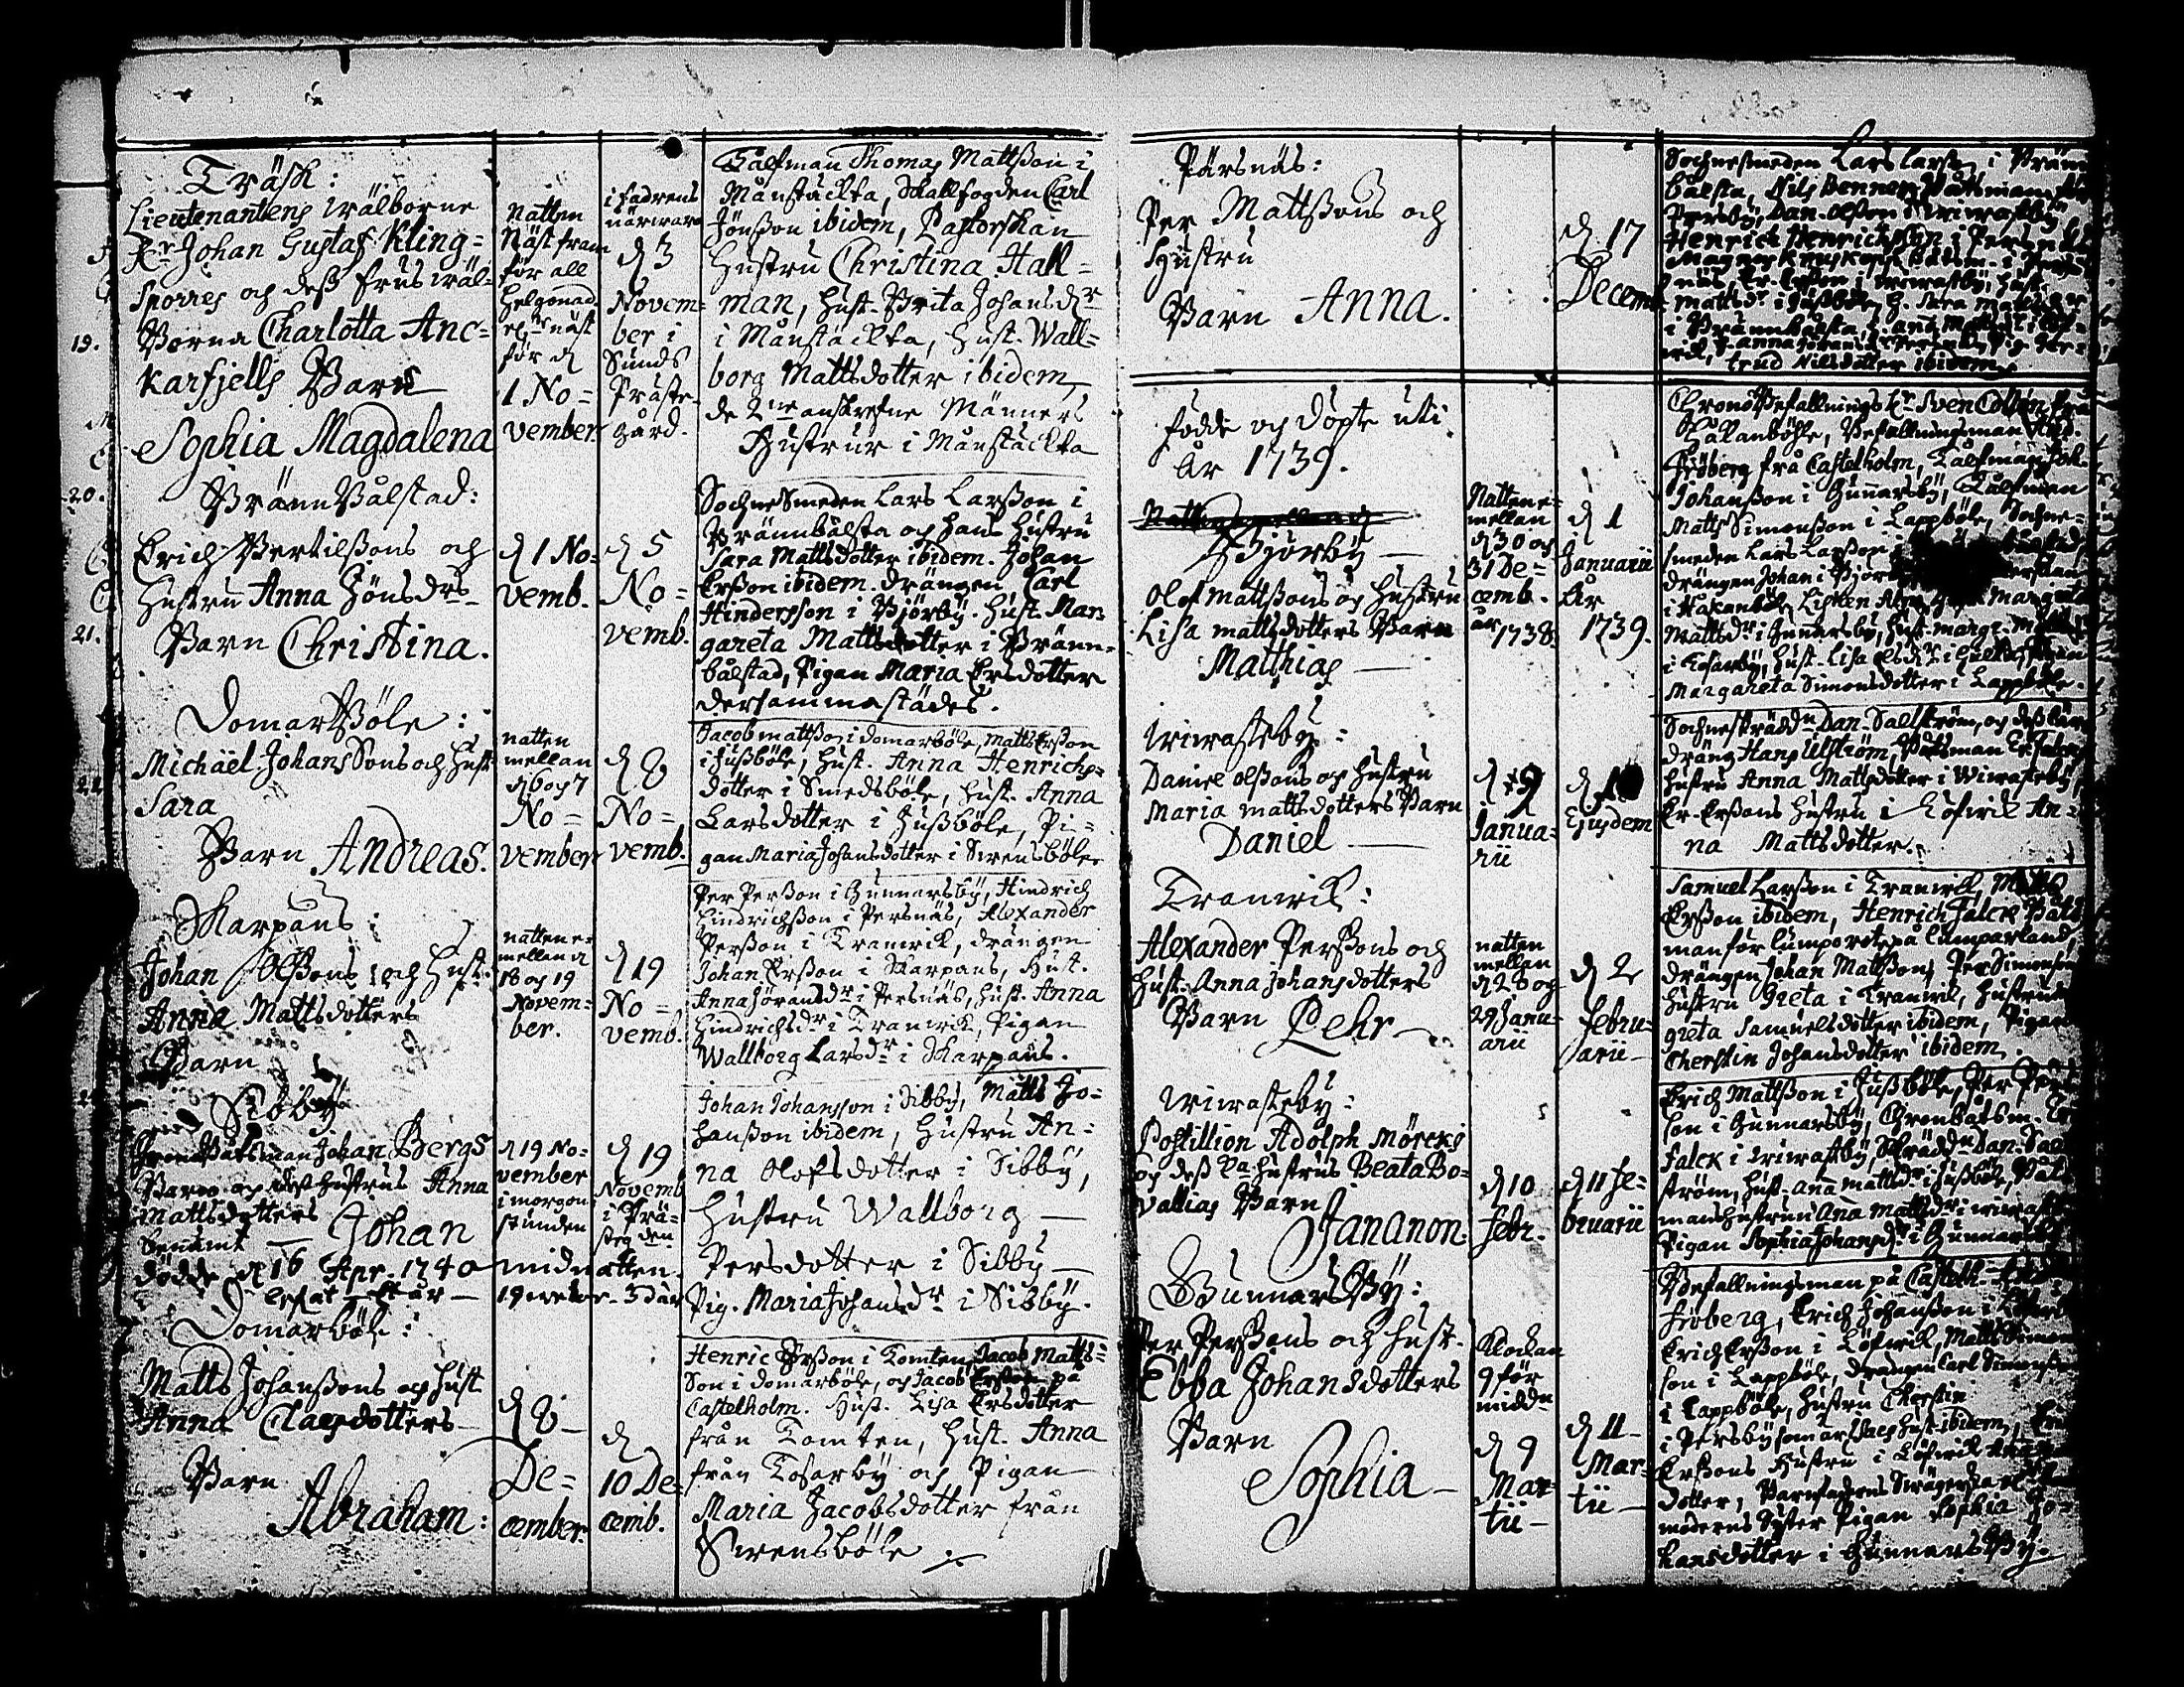 Träsk:
Lieutenantens wälborne
Hr Johan Gustaf Kling=
sporres och dess frus wäl=
19. Borna Charlotta Anc=
karfjells Barn
Sophia Magdalena
Natten
Näst fram
för all
helgonad.
näst
för d
1 No=
vember
i fadrens
närwaro
d 3
Novem=
ber i
Sunds
Präste-
gård.
Tålfman Thomas Mattsson i
Månstäckta, Skallfogden Carl
Jönsson ibidem, Pastorskan
Hustru Christina Hall=
man, Hust. Brita Johansdr
i Månstäckta, Hust. Wall=
borg Mattsdotter ibidem,
de 2ne anskrefne Männers
Hustrur i Månstäckta
20.
BrännBålstad:
Erich Bertilssons och
Hustru Anna Jönsdrs
21. Barn Christina.
d 1 No=
vemb.
d 5
No=
vemb.
SochneSmeden Lars Larsson i
Brännbålsta och hans Hustru
Sara Mattsdotter ibidem. Johan
Ersson ibidem. drängen Carl
Hindersson i Björby. Hust. Mar=
gareta Mattsdotter i Bränn=
bålstad, Pigan Maria Ersdotter
dersammastädes.
DomarBöle:
Michäel JohansSons och Hust
22
Sara
Barn Andreas.
natten
mellan
d 6 och 7
No=
vember
d 8
No=
vemb.
Jacob Mattsson i domarböle, Matts Ersson
i Jussböle, Hust. Anna Henrichs=
dotter i Smedsböle, Hust. Anna
Larsdotter i Jussböle, Pi=
gan Maria Johansdotter i Swensböle
Skarpans:
Johan Olssons och Hust.
Anna Mattsdotters
Barn
natten e-
mellan d
18 och 19
Novem=
ber.
d 19
No=
vemb.
Per Persson i Gunnarsby, Hindrich
Hindrichsson i Persnäs, Alexander
Persson i Tranwik, drängen
Johan Ersson i Skarpans, Hust.
Anna Göransdr i Persnäs, Hust. Anna
Hindrichsdr i Tranwik, Pigan
Wallborg Larsdr i Skarpans.
Sibby
Båtsman Johan Bergs
Barn och dess hustrus Anna
Mattsdotters
benämt — Johan
dödde d 16 Apr. 1740 midnatten.
1 år — 19 wekor - 3 dar
d 19 No=
vember
i morgon
stunden
d 19
Novemb
i Prä=
steg den
Johan Johansson i Sibby, Matts Jo=
hansson ibidem, Hustru An=
na Olofsdotter i Sibby,
Hustru Wallborg —
Persdotter i Sibby —
Pig. Maria Johansdr i Sibby.
Domarböle:
Matts Johanssons och Hust
Anna Claesdotters
Barn
Abraham:
d 8
De=
cember.
d
10 De=
cemb.
Henric Ersson i Tomten, Jacob Matts=
Son i domarböle, och Jacob Ersson på
Castelholm. Hust. Lisa Ersdotter
från Tomten, Hust. Anna
från Tosarby och Pigan
Maria Jacobsdotter från
Swensböle
Pärsnäs:
Per Mattssons och
Hustru
Barn Anna.
d 17
Decemb
Sochnesmeden Lars Larsson i Bränn
bålsta, Nils Benner Båtsman
Persby, Dan. Olsson i Wiwastby
Henrich Henrichsson i Persnäs
Magnus
näs, Er. Ersson i Wiwastby, Hust.
Mattsdr i Jussböle, H. Sara Mattsdr
i Brännbålsta
trud Nilsdotter ibidem.
födde och döpte uti
År 1739.
Björby —
Olof Mattssons och Hustru
Lisa Mattsdotters Barn
Matthias —
Natten e-
mellan
d 30 och
31 De=
cemb.
år
1738.
d 1
Januarii
År
1739.
ChronoBefallnings Hr Sven
Hålanböle, Befallningsman
Fröberg frå Castelholm, Tålfman Joh.
Johansson i Gunnarsby, Tålfman
Matts Simonsson i Lappböle, Sochne=
smeden Lars Larsson i
drängen Johan i Björby
Mattsdr i Gunnarsby, Hust. Margr.
i Tosarby, Hust. Lisa
Margareta Simonsdotter i Lappböle.
Wiwasteby:
Daniel Olssons och Hustru
Maria Mattsdotters Barn
Daniel —
d 9
Janua=
rii
d
Ejusdem
Sochneskrädd. Dan. Saelström, och dess lär
dräng Hans Ulström, Båtsman Er. Falcks
hustru Anna Mattsdotter i Wiwasteby,
Er. Erssons Hustru i Löfwik An=
na Mattsdotter.
Tranwik:
Alexander Perssons och
Hust. Anna Johansdotters
Barn Pehr
natten
mellan
d 28 och
29 Janu=
arii
d 2
Febru=
arii
Samuel Larsson i Tranwik, Matts
Ersson ibidem, Henrich Falck Båts
man för Lumporote på Lumparland,
drängen Johan Mattsson, Per Simonsson
hustru Greta i Tranwik, Hustru
Greta Samuelsdotter ibidem, Pigan
Cherstin Johansdotter ibidem.
Wiwasteby:
Postillion Adolph Mörcks
och dess Ka hustrus Beata Bo=
vallias Barn
Jananon.
d 10
Febr.
d 11 Fe=
bruarii
Erich Mattsson i Jussböle, Per Pers
son i Gunnarsby, Chronbåtsm. Er.
Falck i Wiwastby, Skrädd. Dan. Sael
ström, Hust. Ana Mattsdr i Jussböle, Båts
mans hustrun Ana Mattsdr i Wiwastby
Pigan Sophia Johansdr i Gunnarsby
GunnarsBy:
Per Perssons och Hust.
Ebba Johansdotters
Barn
Sophia —
Klockan
9 för
midd.
d 9
Mar=
tii —
d 11
Mar=
tii —
Befallningsman på Castelh.
Fröberg, Erich Johansson i
Erich Ersson i Löfwik, Matts Simons
son i Lappböle, drängen Carl Simonsson
i Lappböle, Hustru Cherstin
i Persby
Erssons Hustru i Löfwik
dotter, Barnfadrens Swägerska
moderns Syster Pigan Sophia Jo=
hansdotter i GunnarsBy.